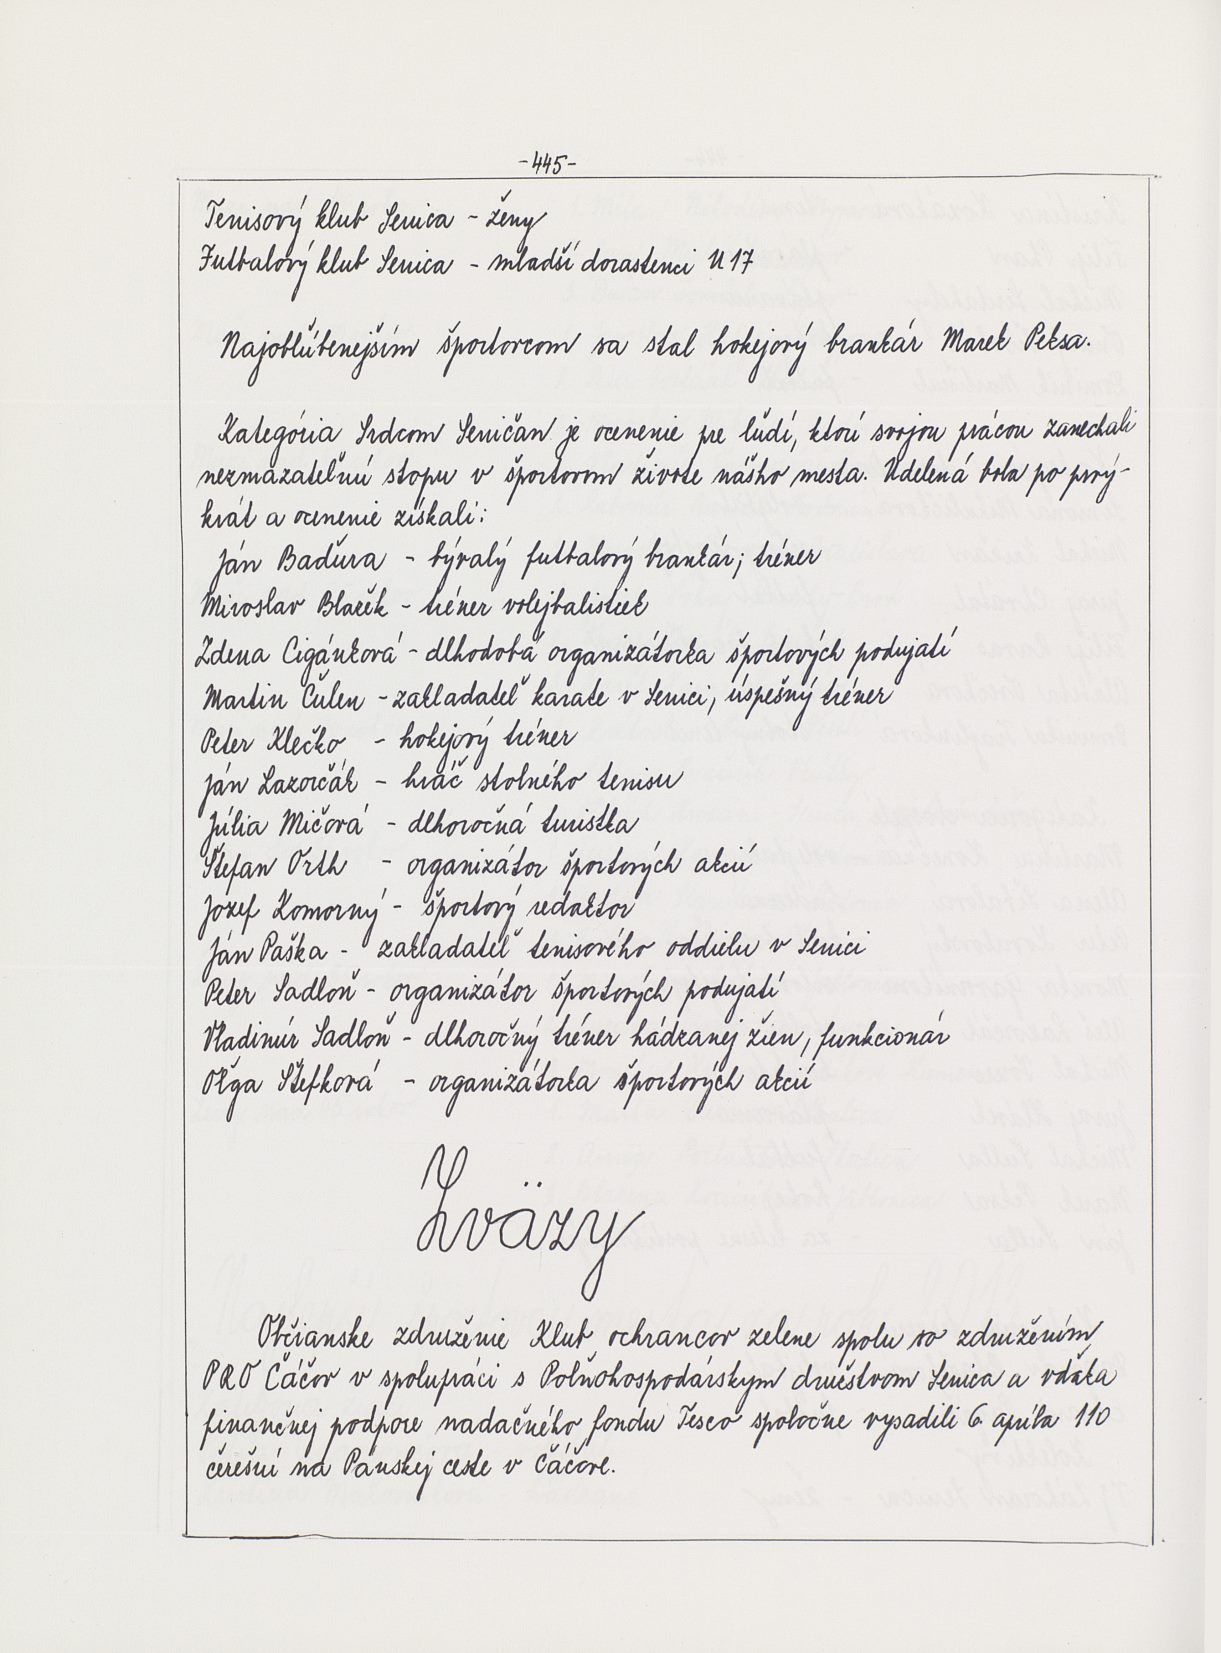 -445-
Tenisový klub Senica - ženy
Futbalový klub Senica - mladší dorastenci U 17
Najobľúbenejším športovcom sa stal hokejový brankár Marek Peksa.
Kategória Srdcom Seničan je ocenenie pre ľudí, ktorí svojou prácou zanechali
nezmazateľnú stopu v športovom živote nášho mesta. Udelená bola po prvý-
krát a ocenenie získali:
Ján Baďura - bývalý futbalový brankár, tréner
Miroslav Blažek - tréner volejbalistiek
Zdena Cigánková - dlhodobá organizátorka športových podujatí
Martin Čulen - zakladateľ karate v Senici, úspešný tréner
Peter Klečko - hokejový tréner
Ján Lazorčák - hráč stolného tenisu
Júlia Mičová - dlhoročná turistka
Štefan Orth - organizátor športových akcií
Jozef Komorný - športový redaktor
Ján Paška - zakladateľ tenisového oddielu v Senici
Peter Sadloň - organizátor športových podujatí
Vladimír Sadloň - dlhoročný tréner hádzanej žien, funkcionár
Oľga Štefková - organizátorka športových akcií
Zväzy
Občianske združenie Klub ochrancov zelene spolu so združením
PRO Čáčov v spolupráci s Poľnohospodárskym družstvom Senica a vďaka
finančnej podpore nadačného fondu Tesco spoločne vysadili 6. apríla 110
čerešní na Panskej ceste v Čáčove.